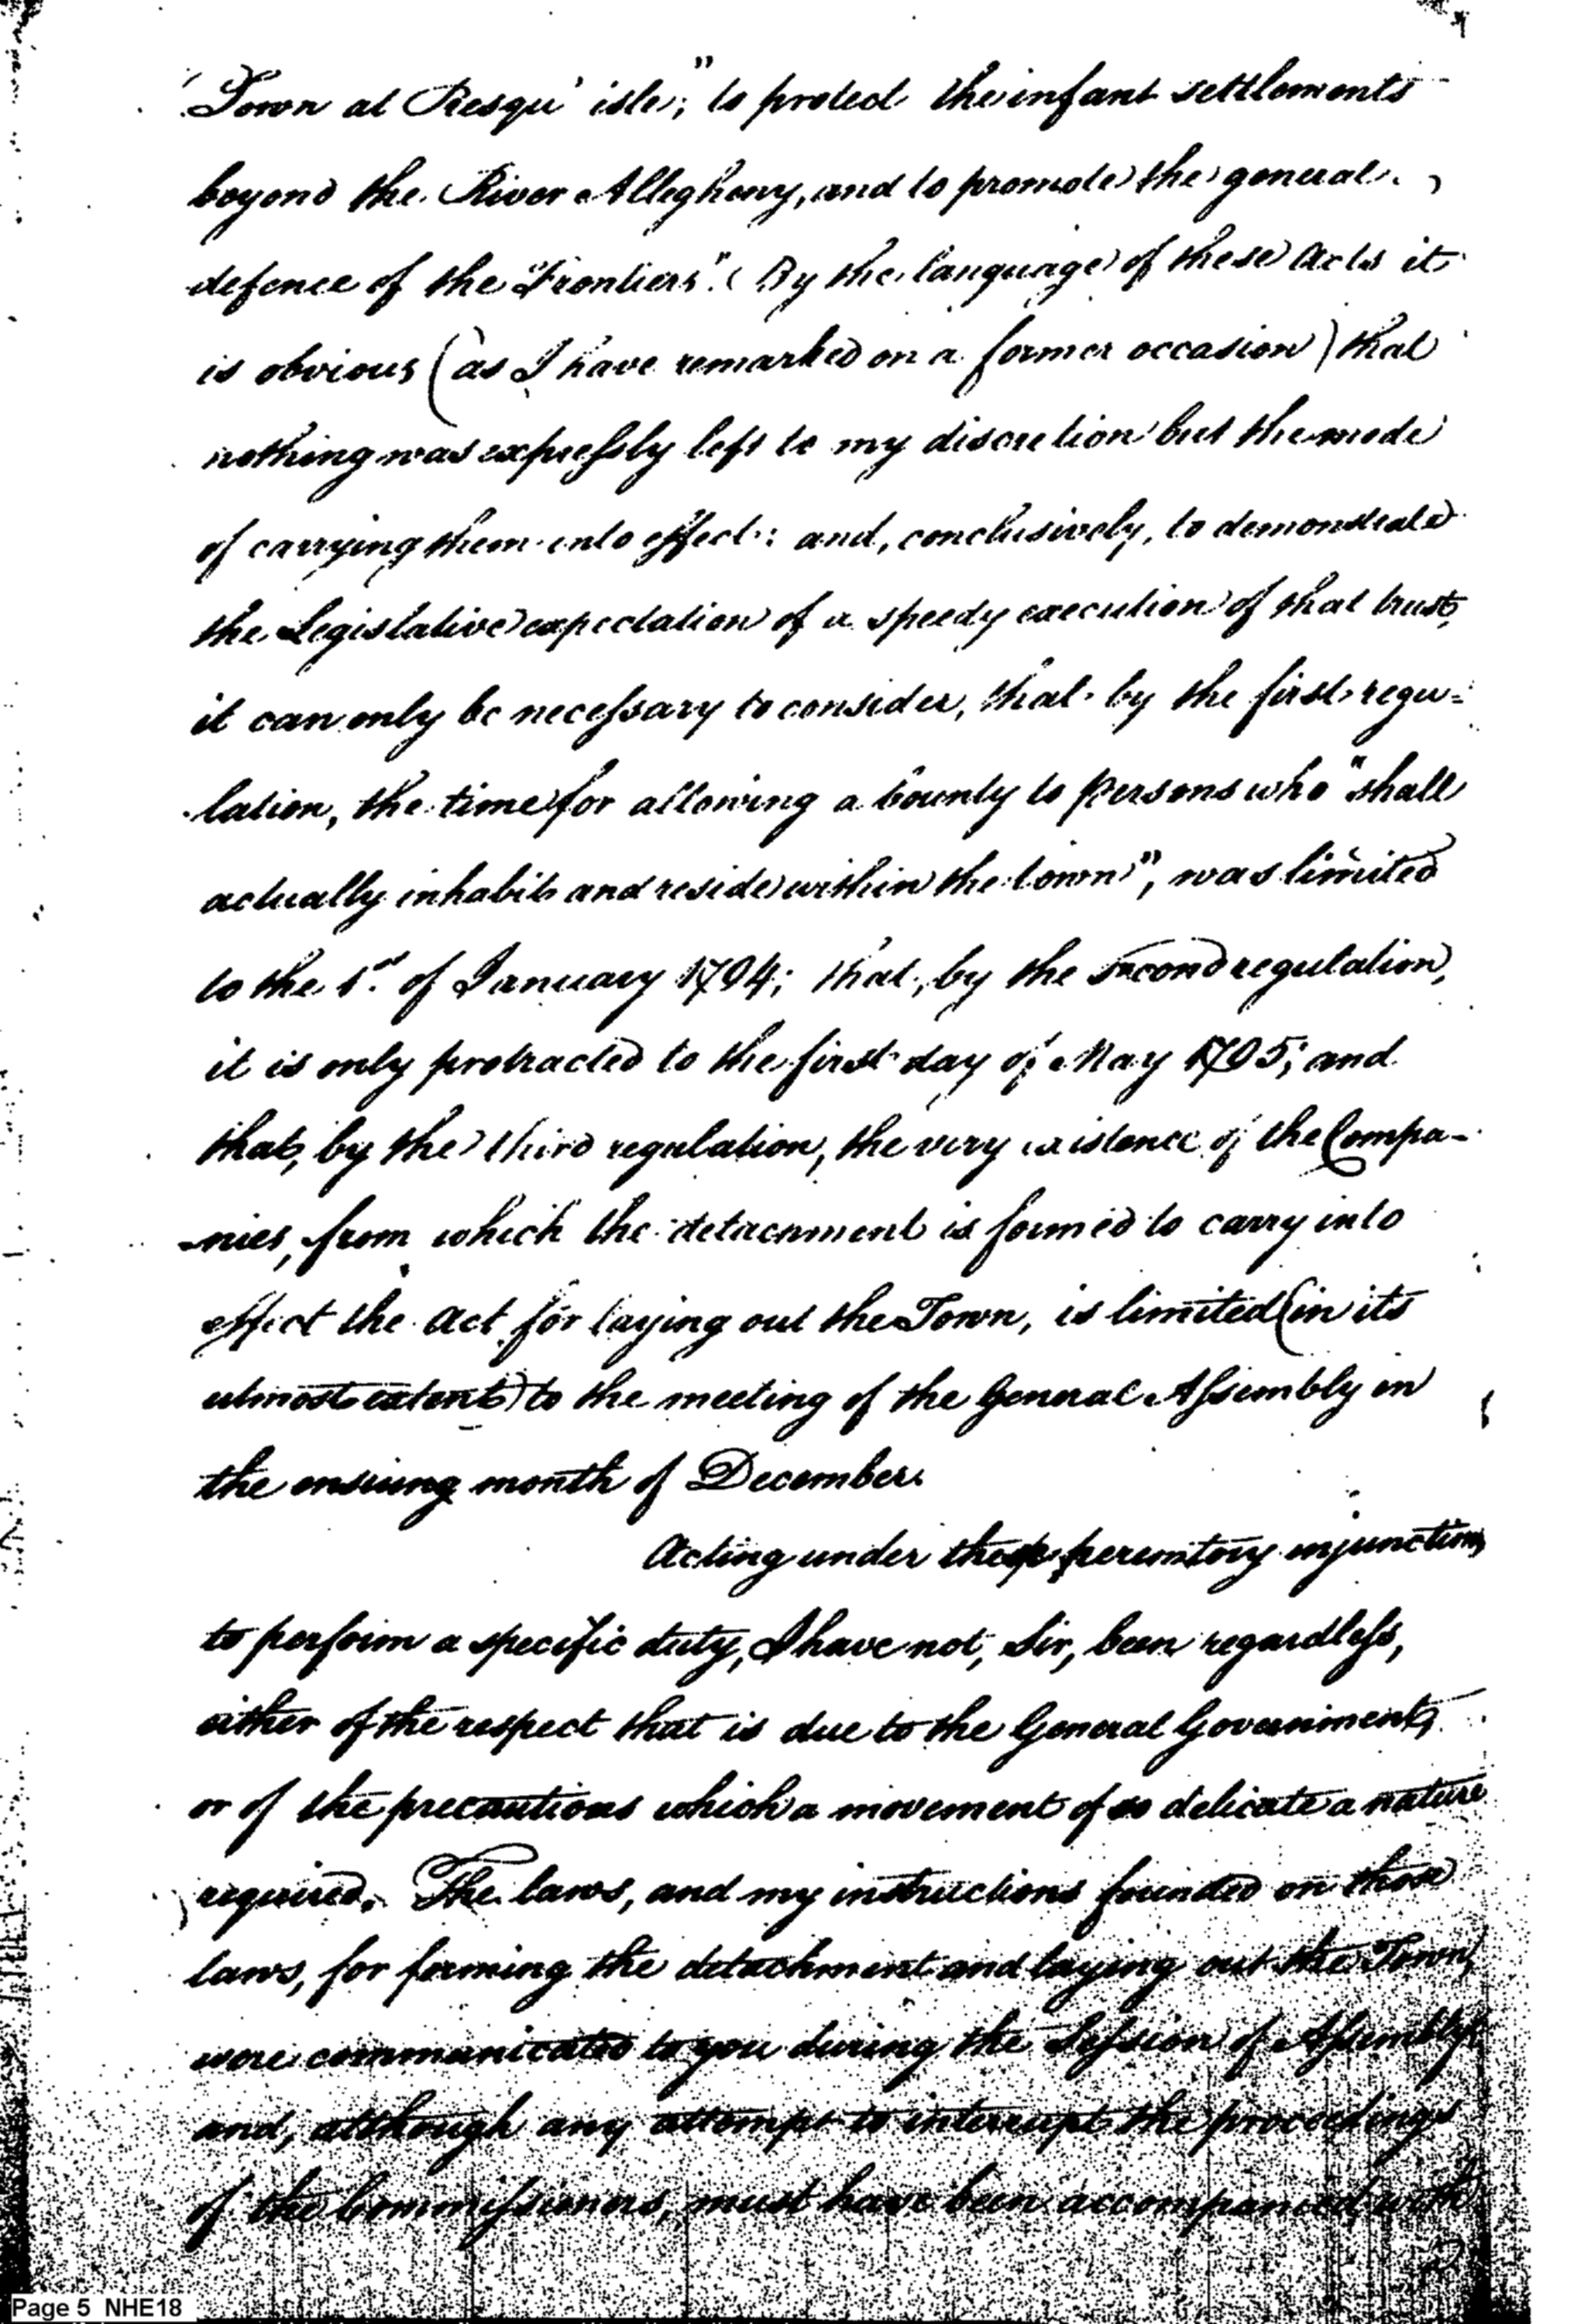 Town at Presqu' isle," to protect the infant settlements
beyond the River Allegheny, and to promote the general
defence of the Frontiers". By the language of these Acts it
is obvious (as I have remarked on a former occasion) that
nothing was expressly left to my discretion but the mode
of carrying them into effect: and, conclusively, to demonstrate
the Legislative expectation of a speedy execution of that trust,
it can only be necessary to consider, that by the first regu=
lation, the time for allowing a bounty to persons who "shall
actually inhabit and reside within the town", was limited
to the 1st of January 1794; that, by the second regulation,
it is only protracted to the first day of May 1795; and
that, by the third regulation, the very existence of the Compa-
-nies, from which the detachment is formed to carry into
effect the Act for laying out the Town, is limited (in its
utmost extent) to the meeting of the General Assembly in
the ensuing month of December.
Acting under these peremtory injunctions
to perform a specific duty, I have not, Sir, been regardless,
either of the respect that is due to the General Government,
or of the precautions which a movement of so delicate a nature
required. The laws, and my instructions founded on those
laws, for forming the detachment and laying out the Town,
were communicated to you during the Session of Assembly
and, although any attempt to interrupt the proceedings
of the Commissioners, must have been accompanied with
Page 5 NHE18